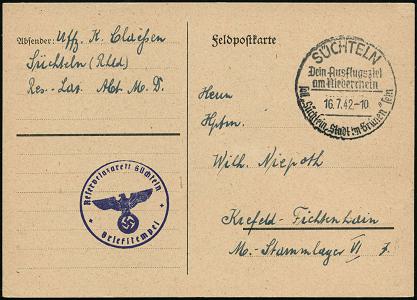 Absender: Uffz. K. Claeßen
Süchteln (Rhld)
Res.-Laz. Abt. M. D.
Reservelazarett Süchteln
Briefstempel
Feldpostkarte
SÜCHTELN
Dein Ausflugsziel
am Niederrhein
16.7.42-10
soll "Süchteln, Stadt im Grünen" sein
Herrn
Hptm.
Wilh. Niepoth
Krefeld-Fichtenhain
M.-Stammlager VI J.